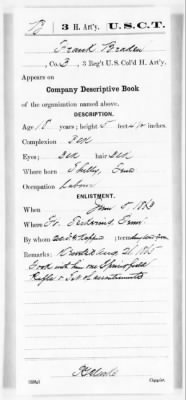 B | 3 H. Art'y. | U.S.C.T.
Frank Braden
, Co. B, 3 Reg't U.S. Col'd H. Art'y.
Appears on
Company Descriptive Book
of the organization named above.
DESCRIPTION.
Age 18 years; height 5 feet in.
Complexion Blk
Eyes; Blk hair Blk
Where born Shelby, Tenn
Occupation Labour
ENLISTMENT.
When June 5, 1863
Where Ft. Pickering, Tenn.
By whom ; term years.
Remarks: Deserted Aug 21 1865
Took with him one Springfield
Rifle & Set of accoutrements
Copyist.